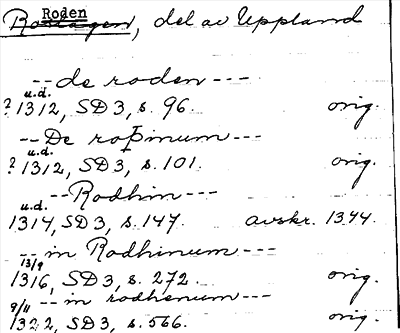 Roden
Roslagen, del av Uppland
-- de roden ---
u.d.
? 1312, SD 3, s. 96. orig.
-- De roþinum ---
u.d.
? 1312, SD 3, s. 101. orig.
-- Rodhin ---
u.d.
1314, SD 3, s. 147. avskr. 1344.
-- in Rodhinum ---
13/9
1316, SD 3, s. 272. orig.
9/11 -- in rodhenum ---
1322, SD 3, s. 566. orig.